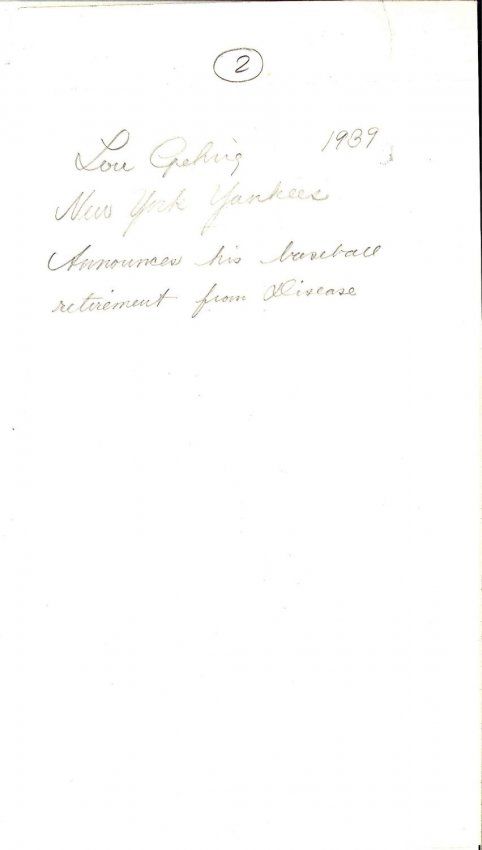 2
Lou Gehrig 1939
New York Yankees
Announces his baseball
retirement from Disease